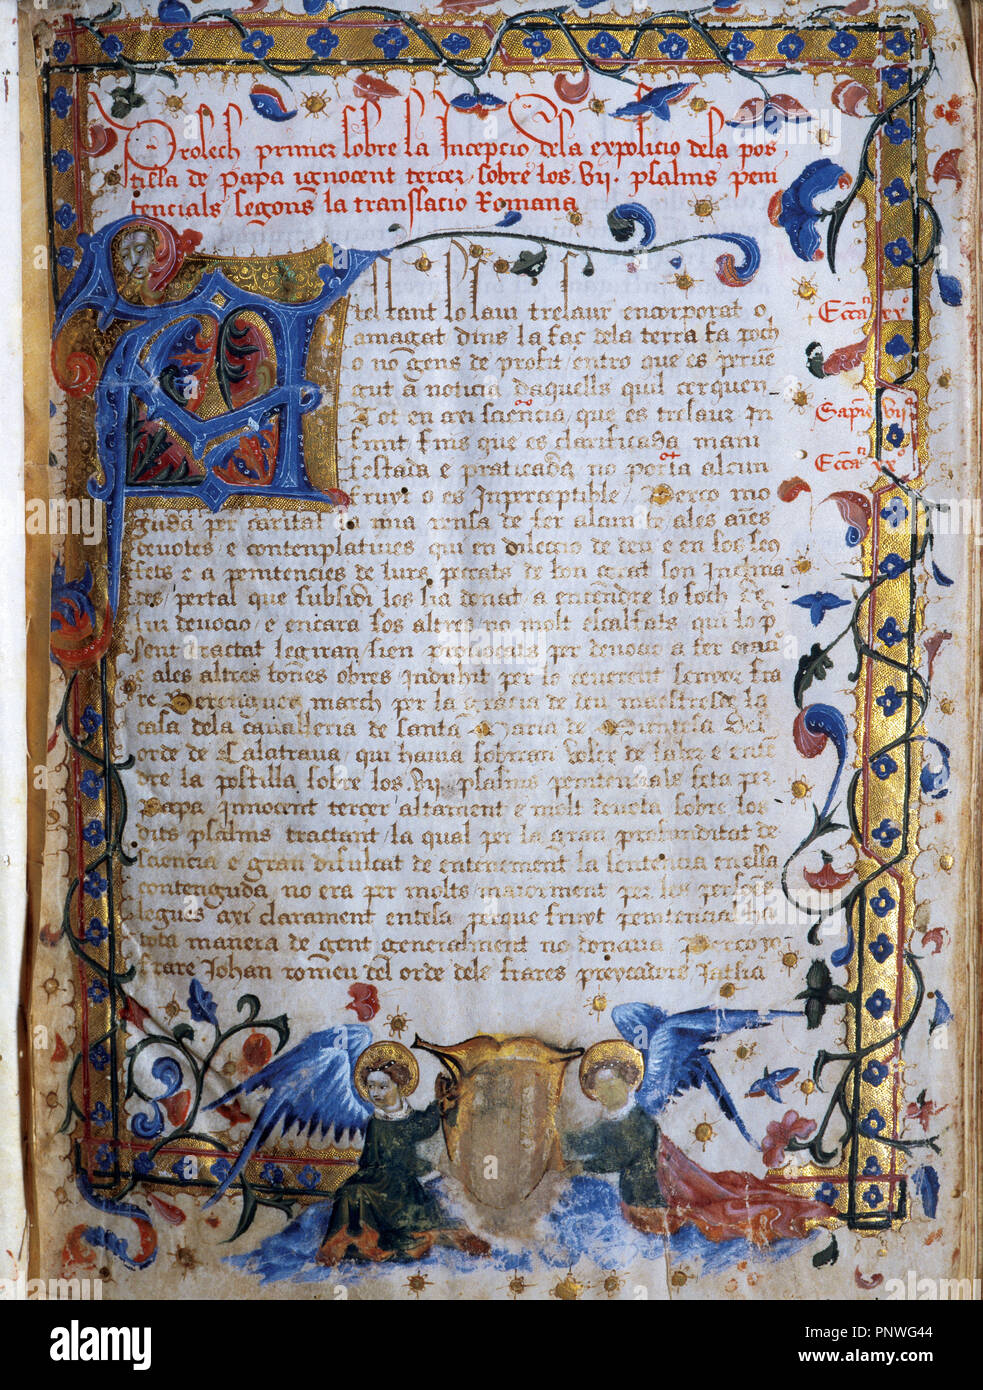 Prolech primer sobre la Incepcio dela exposicio dela pos
tilla de Papa ignocent tercer sobre los .vij. psalms peni
tencials segons la translacio Romana
tesaur encorporat o
amagat dins la faç dela terra fa poch
o no gens de profit / entro que es perue
gut a noticia daquella quil cerquen
Tot en axi sciencia que es tresaur in
finit si mes que es clarificada mani
festada e praticada no poria alcun
fruyt o es Inperceptible / Perço mo
guda per caritat la mia pensa de fer alcun be / ales aīes
deuotes / e contenplatiues qui en dileccio de deu e en los sen
sets e a penitencies de lurs peccats de bon grat son Inclina
des / pertal que subsidi los sia donat a entendre lo loch de
lui deuocio / e encara los altres / no molt escalfats qui lo p̄
sent tractat legiran sien prouocats per deuocio a fer
e ales altres bones obres Induhit per lo reuerent senyor fra
re Berenguer march per la gracia de deu maestre de la
casa dela caualleria de Santa Maria de Muntesa del
orde de Calatraua, qui hauia sobiran voler de saber e enten
dre la postilla sobre los .vij. psalms penitencials feta per
Papa Innocent tercer / altament e molt deuota sobre los
dits psalms tractant / la qual per la gran profunditat de
sciencia e gran dificultat de enteniment la sentencia en ella
contenguda no era per molts / maiorment per les persones
legues axi clarament entesa perque fruyt penitencial ha
tota manera de gent generalment no donaua Perço yo
frare Johan romeu del orde dels frares preycadors
Ecca. xx°
Sapie. vij°
Ecca. xx°
alamy
Image ID: PNWG44
www.alamy.com